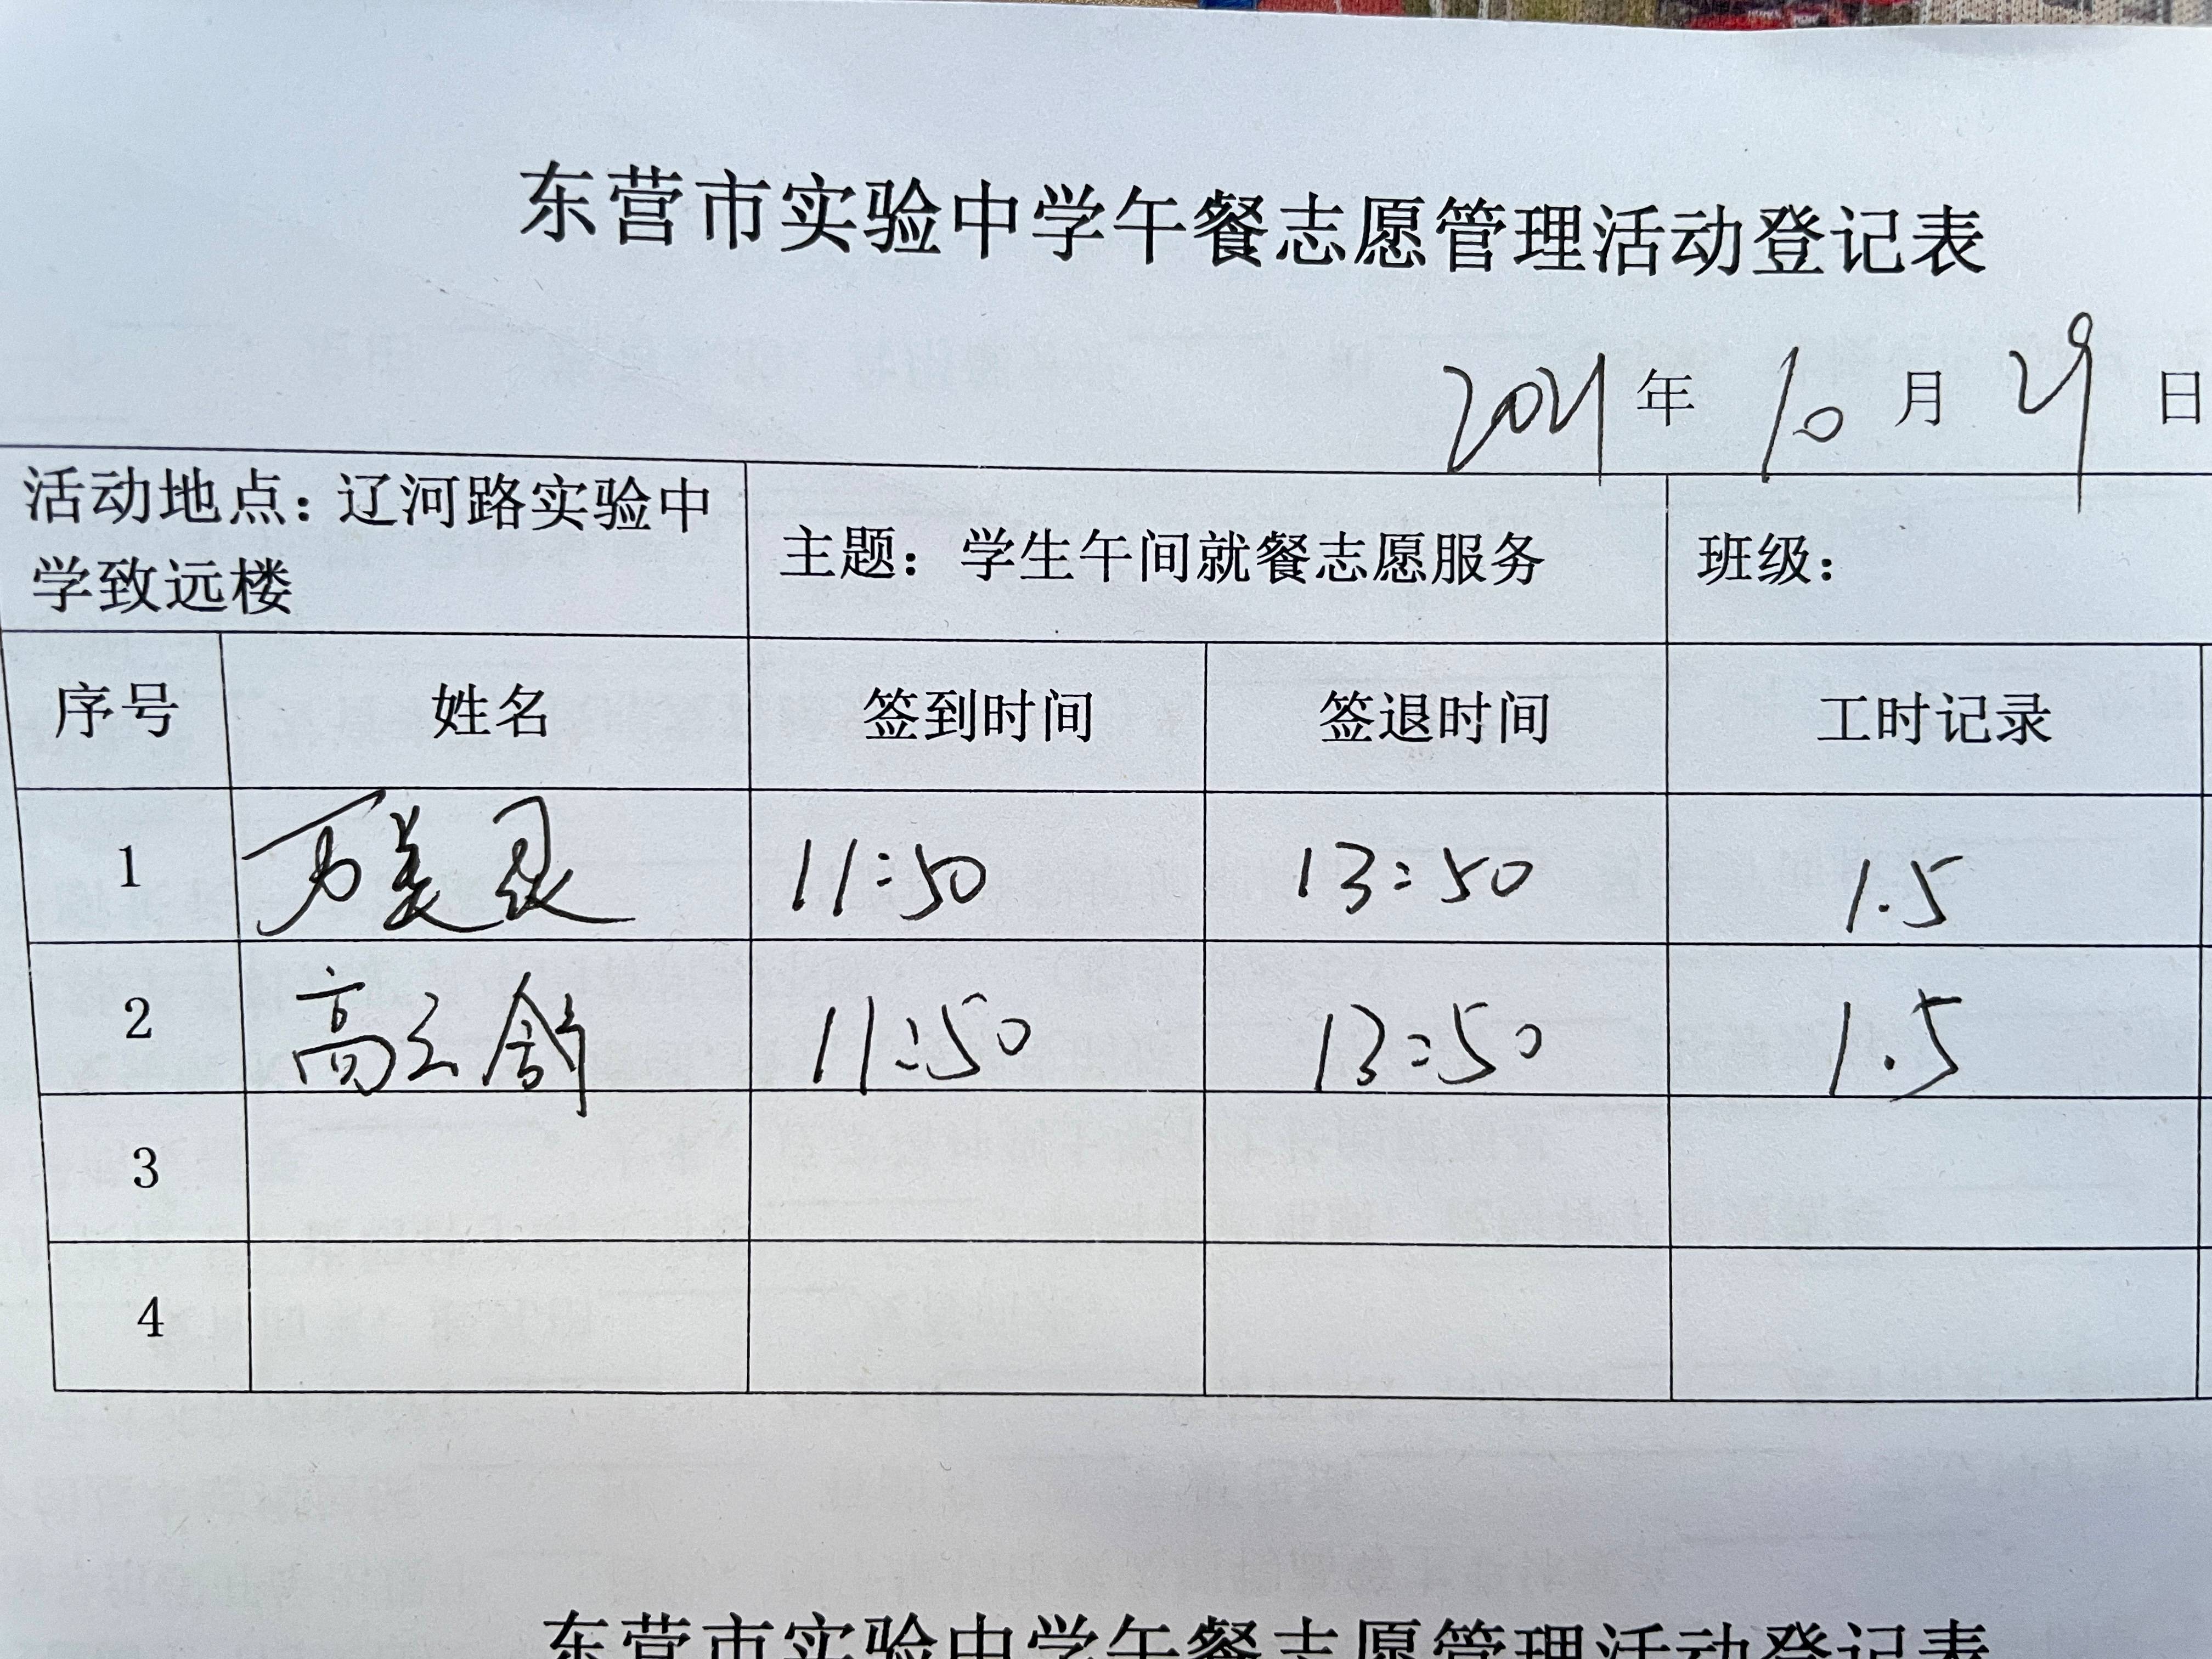 东营市实验中学午餐志愿管理活动登记表
2021年 10月 29日
活动地点：辽河路实验中
学致远楼
主题：学生午间就餐志愿服务
班级：
序号 姓名 签到时间 签退时间 工时记录
1 万美灵 11:50 13:50 1.5
2 高云舒 11:50 13:50 1.5
3
4
东营市实验中学午餐志愿管理活动登记表